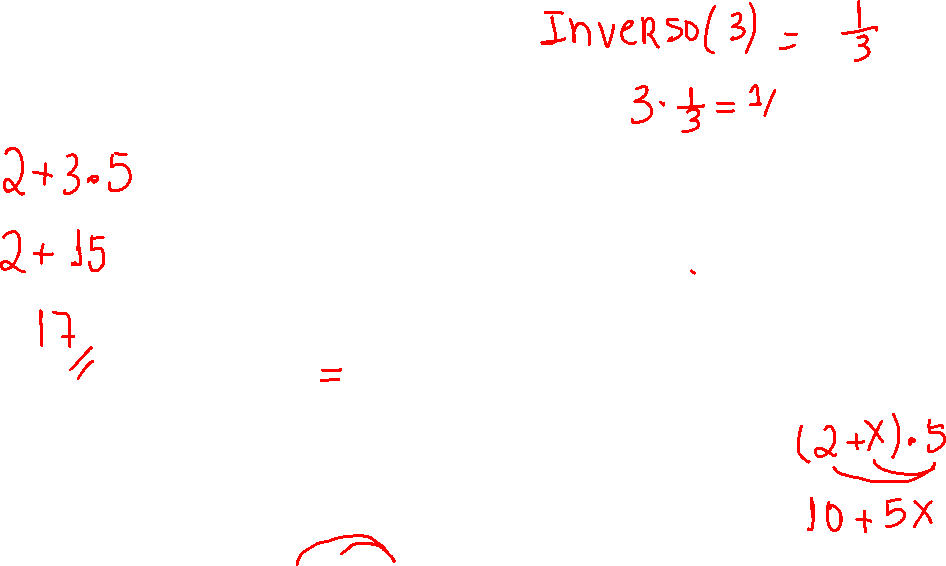 Inverso(3) = 1/3
3 · 1/3 = 1
2+3·5
2+15
17
=
(2+x)·5
10+5x